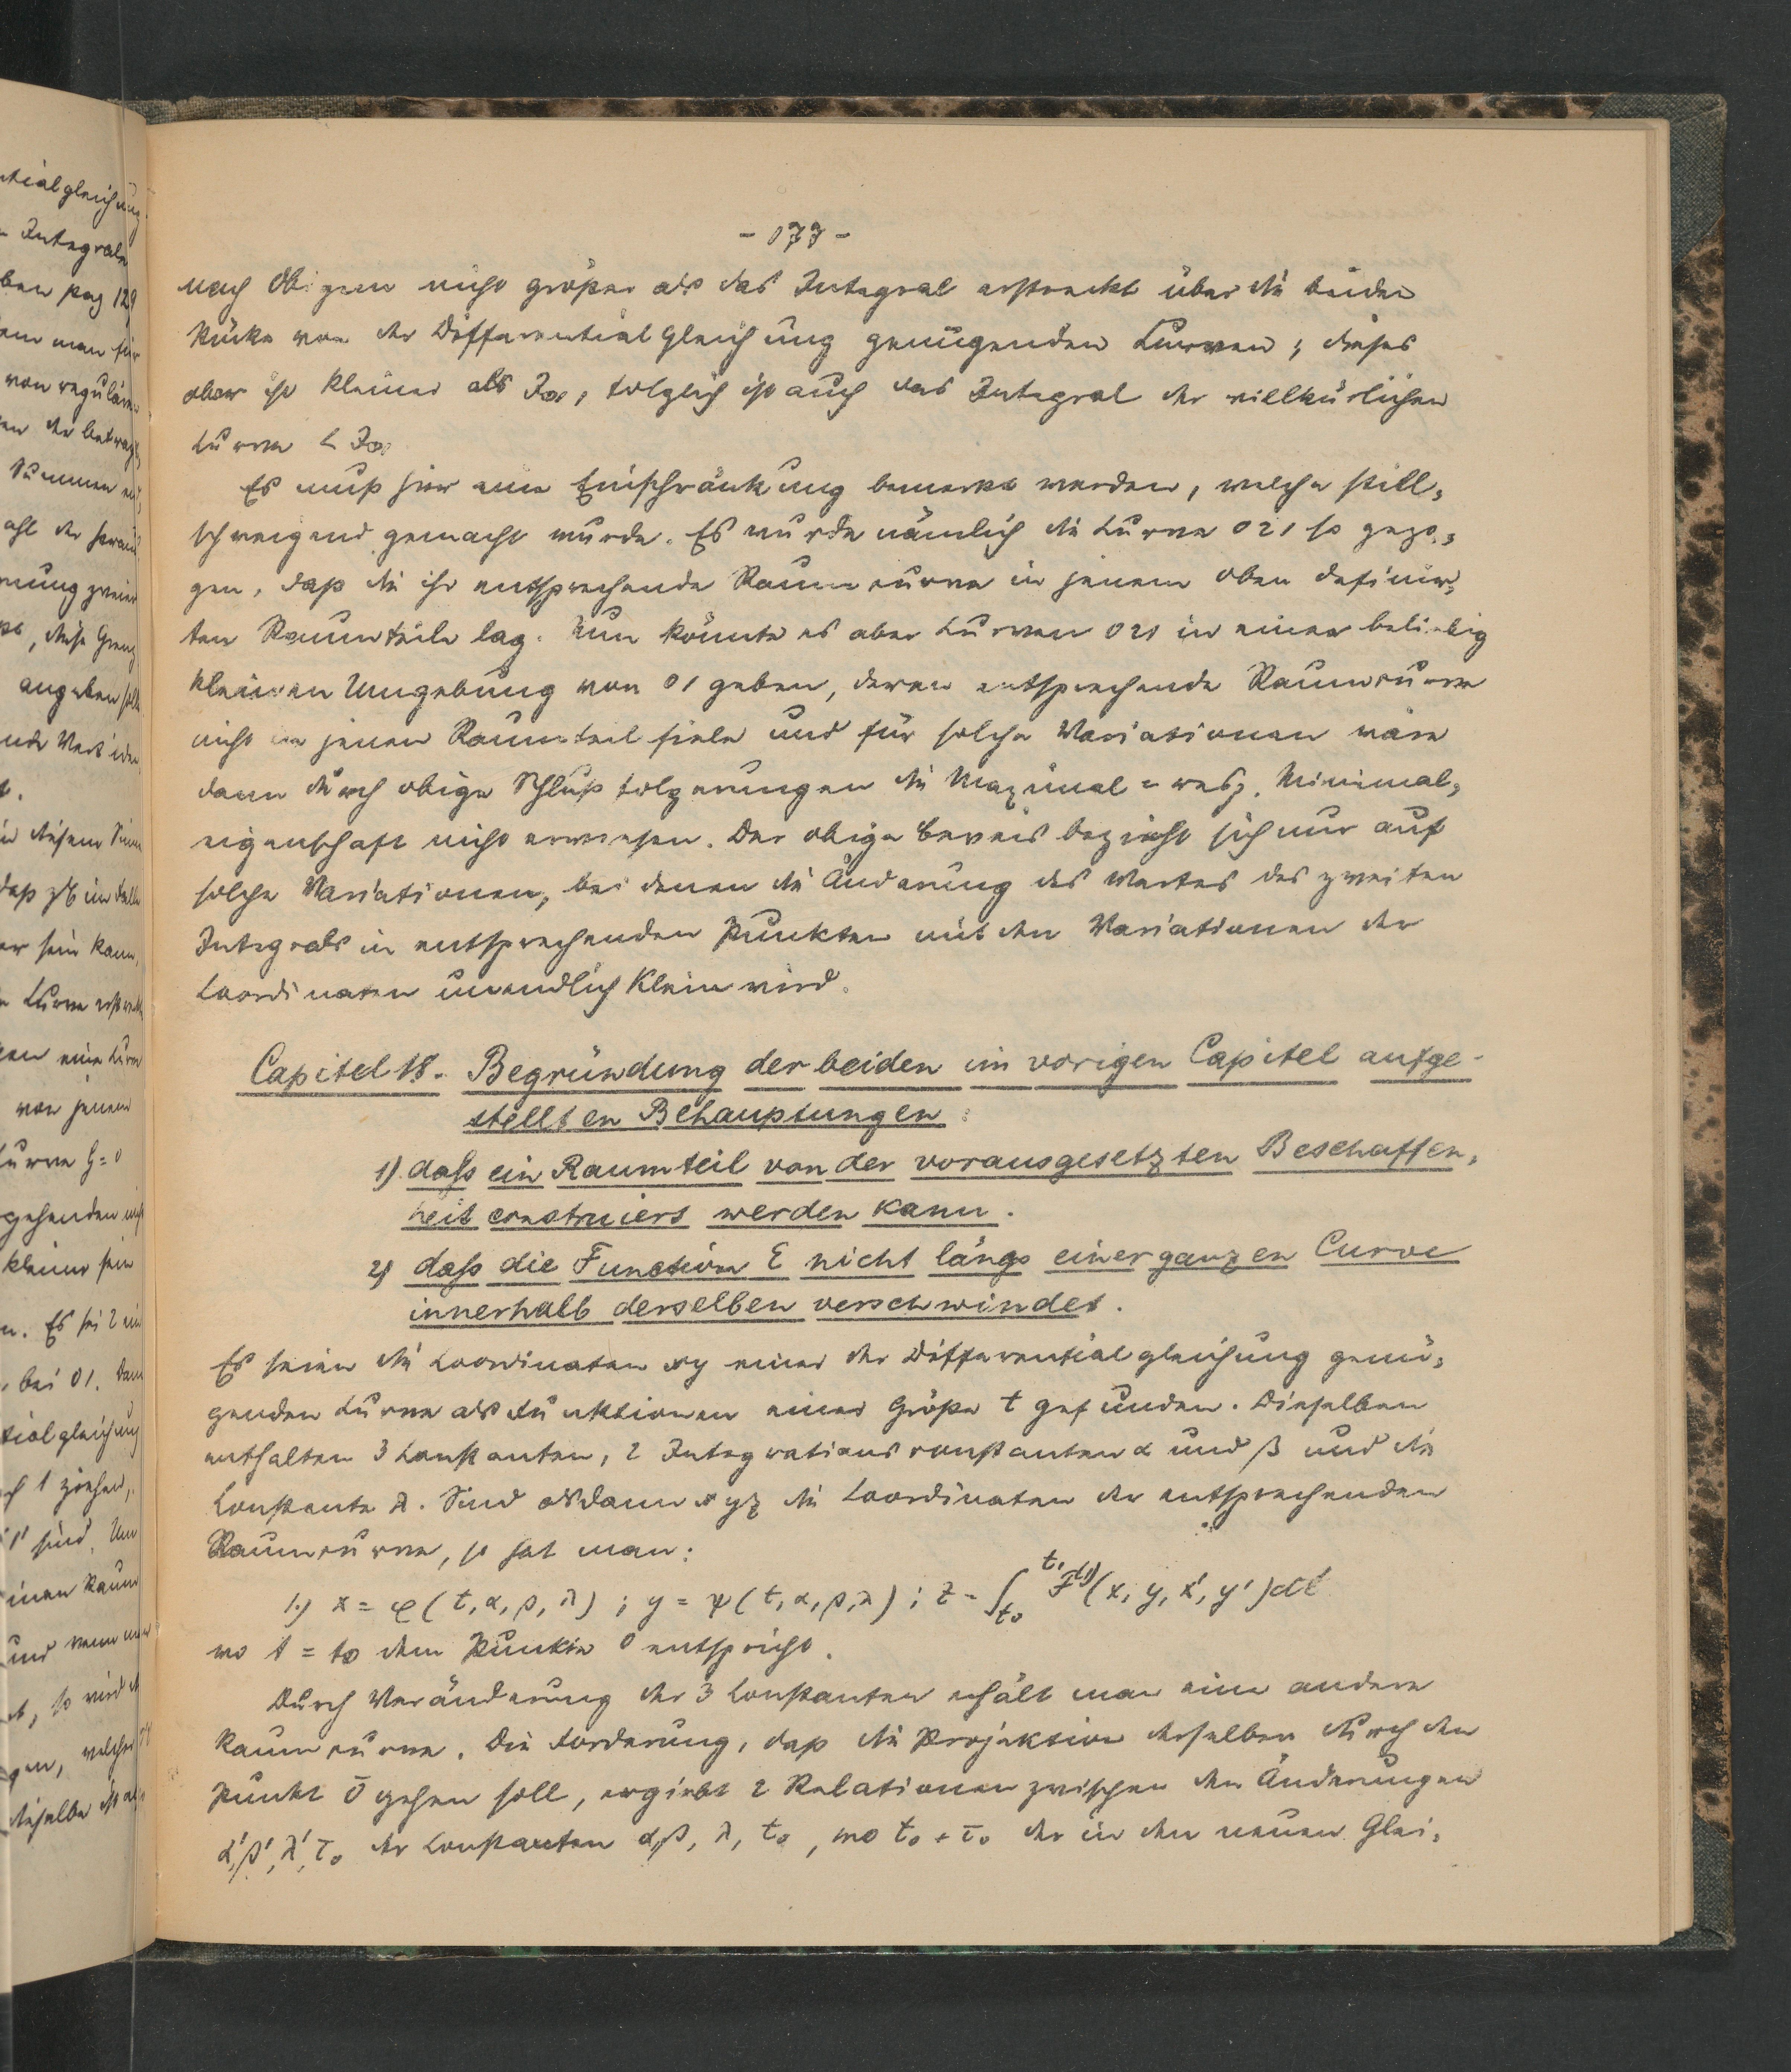 - 177 -
nach Obigem nicht größer als das Integral erstreckt über die beiden
Stücke von der Differentialgleichung genügenden Curven; dieses
aber ist kleiner als J₀₁, folglich ist auch das Integral der willkürlichen
Curve < J₀₁
Es muß hier eine Einschränkung bemerkt werden, welche still=
schweigend gemacht wurde. Es wurde nämlich die Curve 021 so gezo=
gen, daß die ihr entsprechende Raumcurve in jenem oben definir=
ten Raumteile lag. Nun könnte es aber Curven 021 in einer beliebig
kleinen Umgebung von 01 geben, deren entsprechende Raumcurve
nicht in jenen Raumteil fiele und für solche Variationen wäre
dann durch obige Schlußfolgerungen die Maximal= resp. Minimal=
eigenschaft nicht erwiesen. Der obige Beweis bezieht sich nur auf
solche Variationen, bei denen die Änderung des Wertes des zweiten
Integrals in entsprechenden Punkten mit den Variationen der
Coordinaten unendlich klein wird.
Capitel 18. Begründung der beiden im vorigen Capitel aufge-
stellten Behauptungen:
1) daß ein Raumteil von der vorausgesetzten Beschaffen=
heit construiert werden kann.
2) daß die Function E nicht längs einer ganzen Curve
innerhalb derselben verschwindet.
Es seien die Coordinaten xy einer der Differentialgleichung genü=
genden Curve als Funktionen einer Größe t gefunden. Dieselben
enthalten 3 Constanten, 2 Integrationsconstanten α und β und die
Constante λ. Sind alsdann xyz die Coordinaten der entsprechenden
Raumcurve, so hat man:
1.) x = φ(t, α, β, λ) ; y = ψ(t, α, β, λ) ; z = ∫ₜ₀ᵗ' F⁽¹⁾(x, y, x', y')dt
wo t = t₀ dem Punkte 0 entspricht.
Durch Veränderung der 3 Constanten erhält man eine andere
Raumcurve. Die Forderung, daß die Projektion derselben durch den
Punkt 0 gehen soll, ergiebt 2 Relationen zwischen den Änderungen
α', β', λ', τ₀ der Constanten α, β, λ, t₀, wo t₀ + τ₀ der in den neuen Glei=